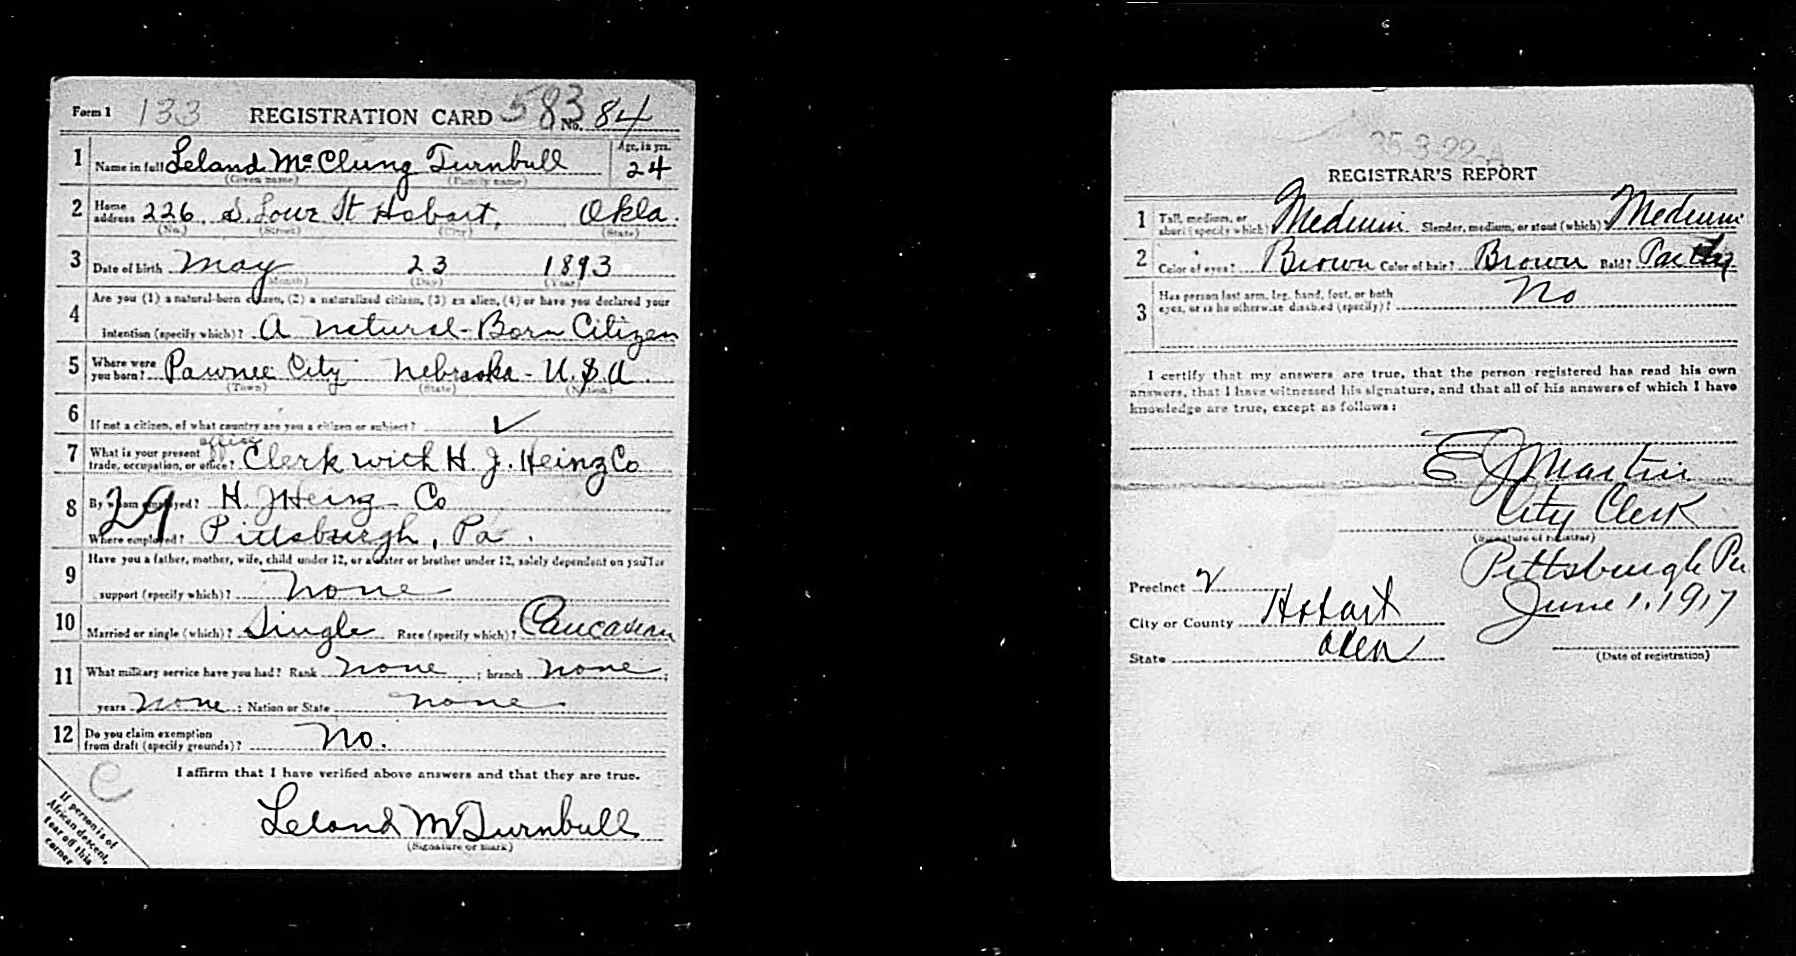 Form 1 133 REGISTRATION CARD 583 No. 84
1 Name in full Leland Mc Clung Turnbull Age, in yrs. 24
(Given name) (Family name)
2 Home address 226 S. Lowe St Hobart, Okla.
(No.) (Street) (City) (State)
3 Date of birth May 23 1893
(Month) (Day) (Year)
Are you (1) a natural-born citizen, (2) a naturalized citizen, (3) an alien, (4) or have you declared your
4 intention (specify which)? A Natural-Born Citizen
5 Where were you born? Pawnee City Nebraska - U.S.A.
(Town) (State) (Nation)
6 If not a citizen, of what country are you a citizen or subject? ✓
office
7 What is your present trade, occupation, or office? Clerk with H. J. Heinz Co
8 By whom employed? H. J Heinz Co
29
Where employed? Pittsburgh, Pa.
Have you a father, mother, wife, child under 12, or a sister or brother under 12, solely dependent on you for
9 support (specify which)? None
10 Married or single (which)? Single Race (specify which)? Caucasian
11 What military service have you had? Rank None ; branch None ;
years None ; Nation or State None
12 Do you claim exemption from draft (specify grounds)? No.
I affirm that I have verified above answers and that they are true.
C
Leland M Turnbull
(Signature or mark)
If person is of
African descent,
tear off this
corner
35-3-22-A
REGISTRAR'S REPORT
1 Tall, medium, or short (specify which)? Medium Slender, medium, or stout (which)? Medium
2 Color of eyes? Brown Color of hair? Brown Bald? Partly
3 Has person lost arm, leg, hand, foot, or both eyes, or is he otherwise disabled (specify)? No
I certify that my answers are true, that the person registered has read his own
answers, that I have witnessed his signature, and that all of his answers of which I have
knowledge are true, except as follows:
E J Martin
City Clerk
(Signature of registrar)
Pittsburgh Pa
Precinct 2
June 1, 1917
City or County Hobart
State Okla
(Date of registration)